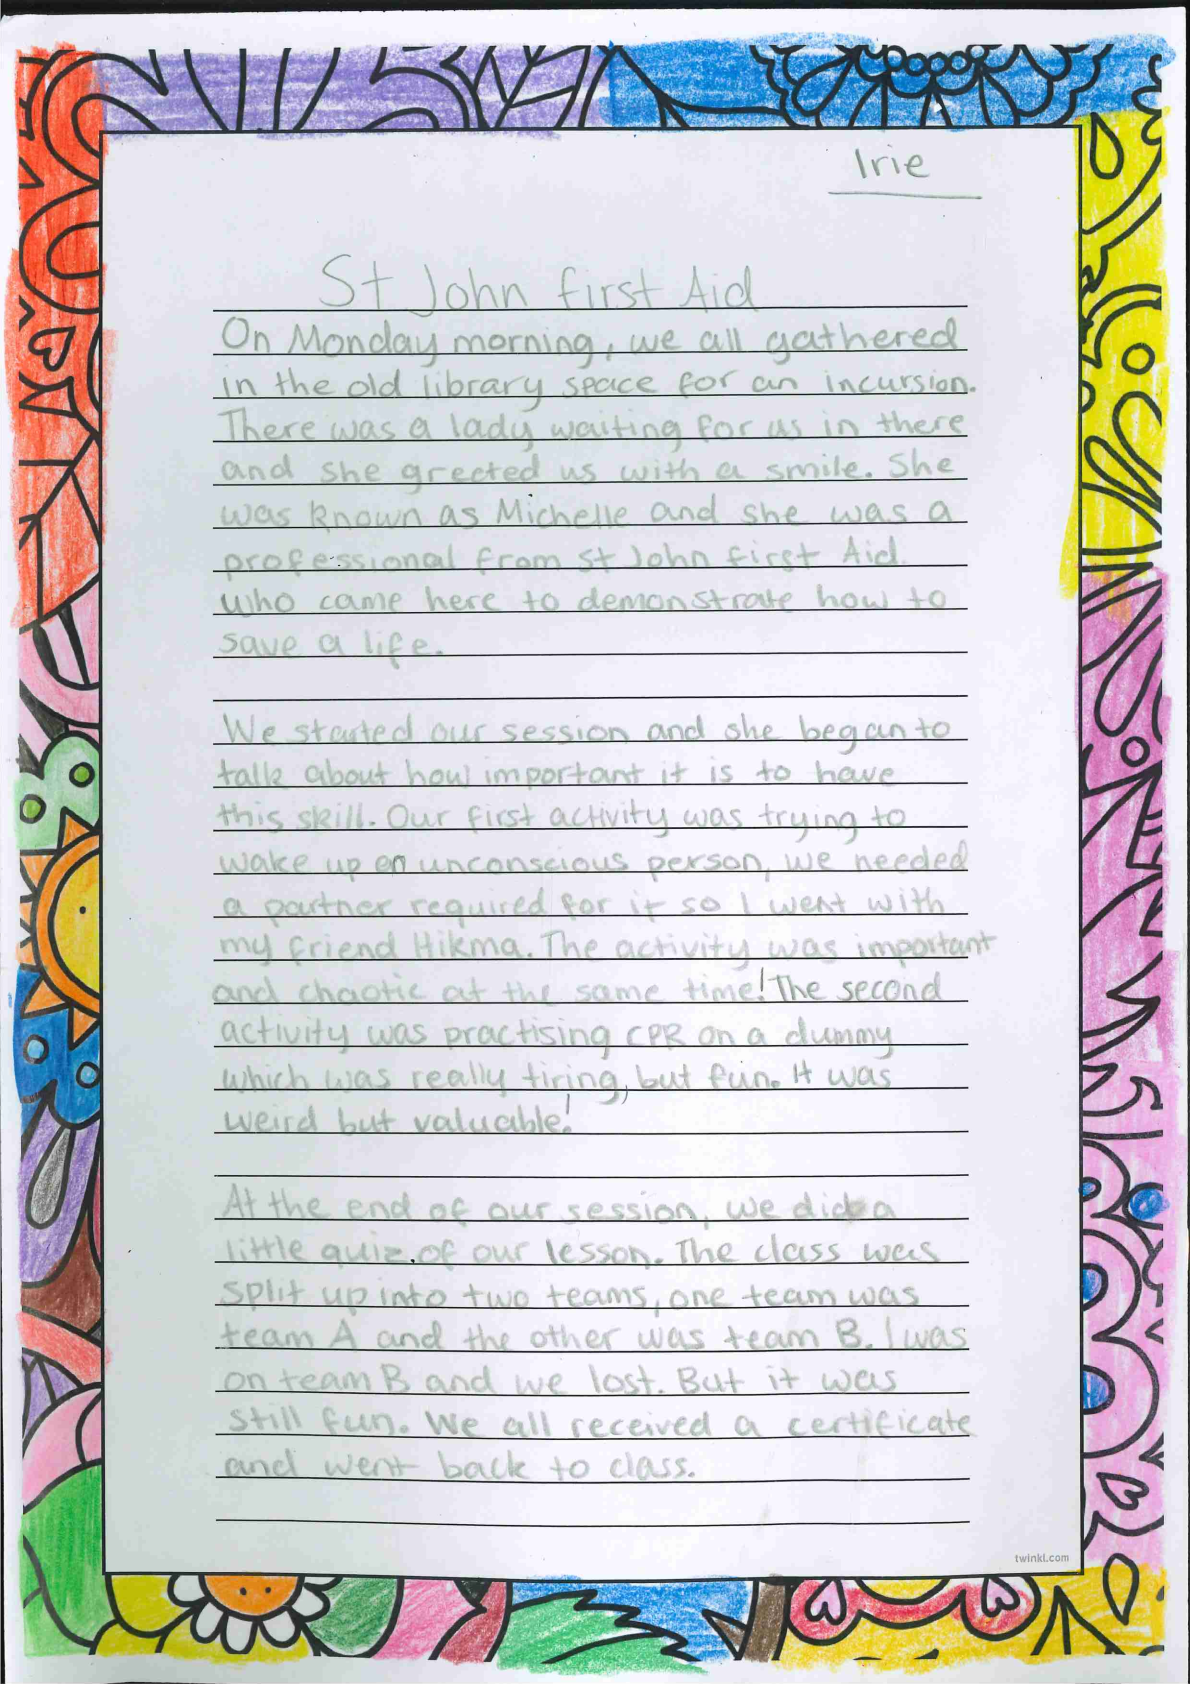 Irie
St John first Aid
On Monday morning, we all gathered
in the old library space for an incursion.
There was a lady waiting for us in there
and she greeted us with a smile. She
was known as Michelle and she was a
professional from St John first Aid
who came here to demonstrate how to
save a life.
We started our session and she began to
talk about how important it is to have
this skill. Our first activity was trying to
wake up an unconscious person, we needed
a partner required for it so I went with
my friend Hikma. The activity was important
and chaotic at the same time! The second
activity was practising CPR on a dummy
which was really tiring, but fun. It was
weird but valuable!
At the end of our session, we did a
little quiz of our lesson. The class was
split up into two teams, one team was
team A and the other was team B. I was
on team B and we lost. But it was
still fun. We all received a certificate
and went back to class.
twinkl.com